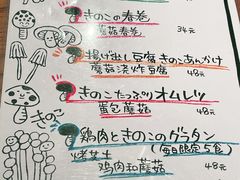 きのこの春巻
蘑菇春卷 34元
揚げ出し豆腐きのこあんかけ
蘑菇浇炸豆腐 48元
きのこたっぷりオムレツ
蛋包蘑菇 48元
きのこ
鶏肉ときのこのグラタン
毎日限定5食
鸡肉和蘑菇 48元